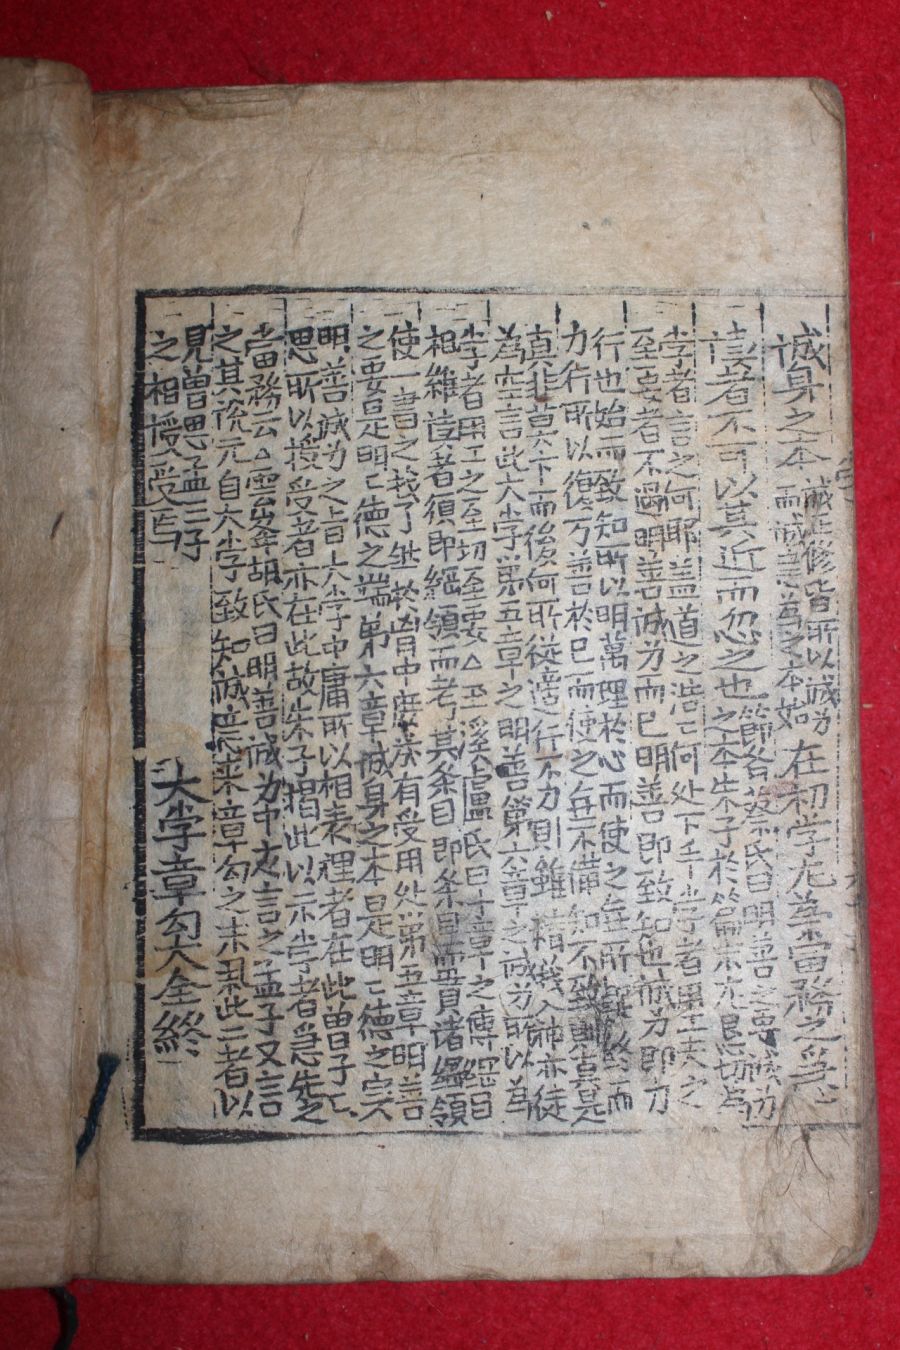 誠身之本
誠正修皆所以誠身
而誠意爲之本始
在初学尤爲當務之急
讀者不可以其近而忽之也
節斎蔡氏曰明善之要誠身
之本朱子於篇末尤懇切爲
学者言之何耶盖道之浩〻何処下手学者用工夫之
至要者不過明善誠身而已明善即致知也誠身即力
行也始而致知所以明萬理於心而使之無所疑終而
力行所以復万善於己而使之無不備知不致則真是
真非莫卞而後何所從適行不力則雖精義入神亦徒
為空言此大学第五章之明善第六章之誠身所以為
学者用工之至切至要△玉溪盧氏曰十章之傳綱目
相維讀者須即綱領而考其条目即条目而貫諸綱領
使一書之義了然於胸中庶幾有受用処第五章明善
之要是明〻德之端第六章誠身之本是明〻德之实
明善誠身之旨大学中庸所以相表裡者在此曾子子
思所以授受者亦在此故朱子揭此以示学者急先之
當務云△雲峯胡氏曰明善誠身中庸言之孟子又言
之其傳元自大学致知誠意来章句之末擧此二者以
見曾思孟三子
之相授受焉
大学章句大全終